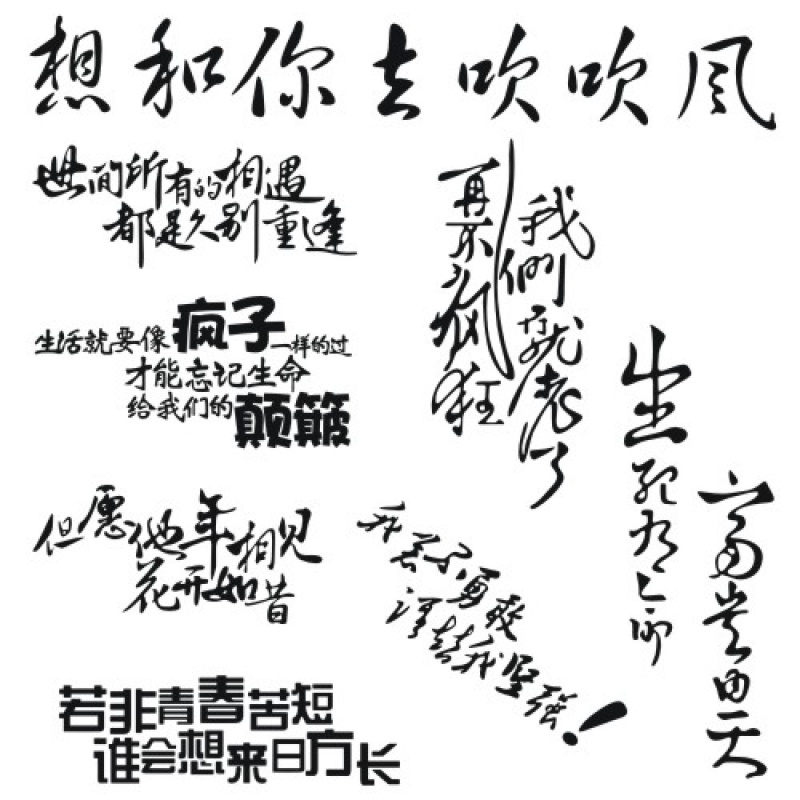 想和你去吹吹风
世间所有的相遇
都是久别重逢
再不疯狂
我們就老了
生活就要像疯子一样的过
才能忘记生命
给我们的颠簸
生死有命
富贵由天
但愿他年相见
花开如昔
我若不勇敢
谁替我坚强！
若非青春苦短
谁会想来日方长